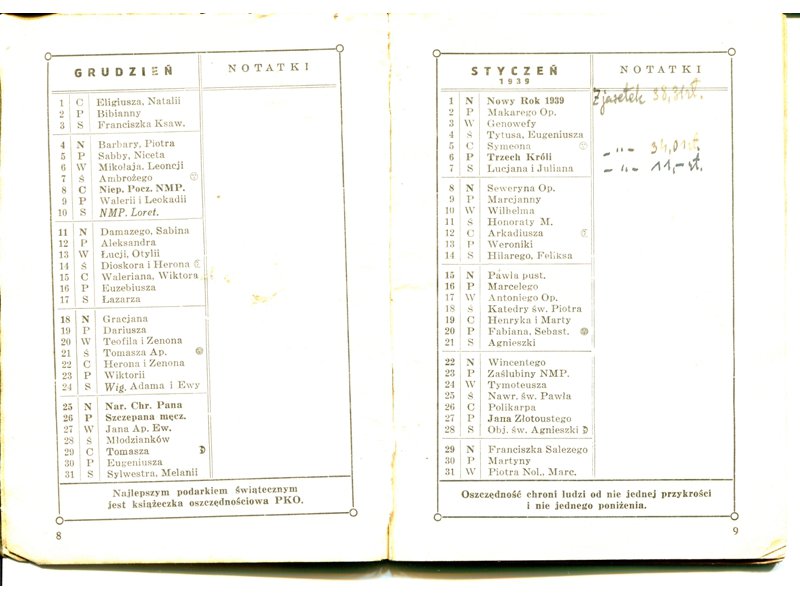 GRUDZIEŃ NOTATKI
1 C Eligiusza, Natalii
2 P Bibianny
3 S Franciszka Ksaw.
4 N Barbary, Piotra
5 P Sabby, Niceta
6 W Mikołaja, Leoncji
7 Ś Ambrożego
8 C Niep. Pocz. NMP.
9 P Walerii i Leokadii
10 S NMP. Loret.
11 N Damazego, Sabina
12 P Aleksandra
13 W Łucji, Otylii
14 Ś Dioskora i Herona
15 C Waleriana, Wiktora
16 P Euzebiusza
17 S Łazarza
18 N Gracjana
19 P Dariusza
20 W Teofila i Zenona
21 Ś Tomasza Ap.
22 C Herona i Zenona
23 P Wiktorii
24 S Wig. Adama i Ewy
25 N Nar. Chr. Pana
26 P Szczepana męcz.
27 W Jana Ap. Ew.
28 Ś Młodzianków
29 C Tomasza
30 P Eugeniusza
31 S Sylwestra, Melanii
Najlepszym podarkiem świątecznym
jest książeczka oszczędnościowa PKO.
8
STYCZEŃ NOTATKI
1939
1 N Nowy Rok 1939
2 P Makarego Op.
3 W Genowefy
4 Ś Tytusa, Eugeniusza
5 C Symeona
6 P Trzech Króli
7 S Lucjana i Juliana
8 N Seweryna Op.
9 P Marcjanny
10 W Wilhelma
11 Ś Honoraty M.
12 C Arkadiusza
13 P Weroniki
14 S Hilarego, Feliksa
15 N Pawła pust.
16 P Marcelego
17 W Antoniego Op.
18 Ś Katedry św. Piotra
19 C Henryka i Marty
20 P Fabiana, Sebast.
21 S Agnieszki
22 N Wincentego
23 P Zaślubiny NMP.
24 W Tymoteusza
25 Ś Nawr. św. Pawła
26 C Polikarpa
27 P Jana Złotoustego
28 S Obj. św. Agnieszki
29 N Franciszka Salezego
30 P Martyny
31 W Piotra Nol., Marc.
Z jasełek
- „ - 11,- zł.
Oszczędność chroni ludzi od nie jednej przykrości
i nie jednego poniżenia.
9